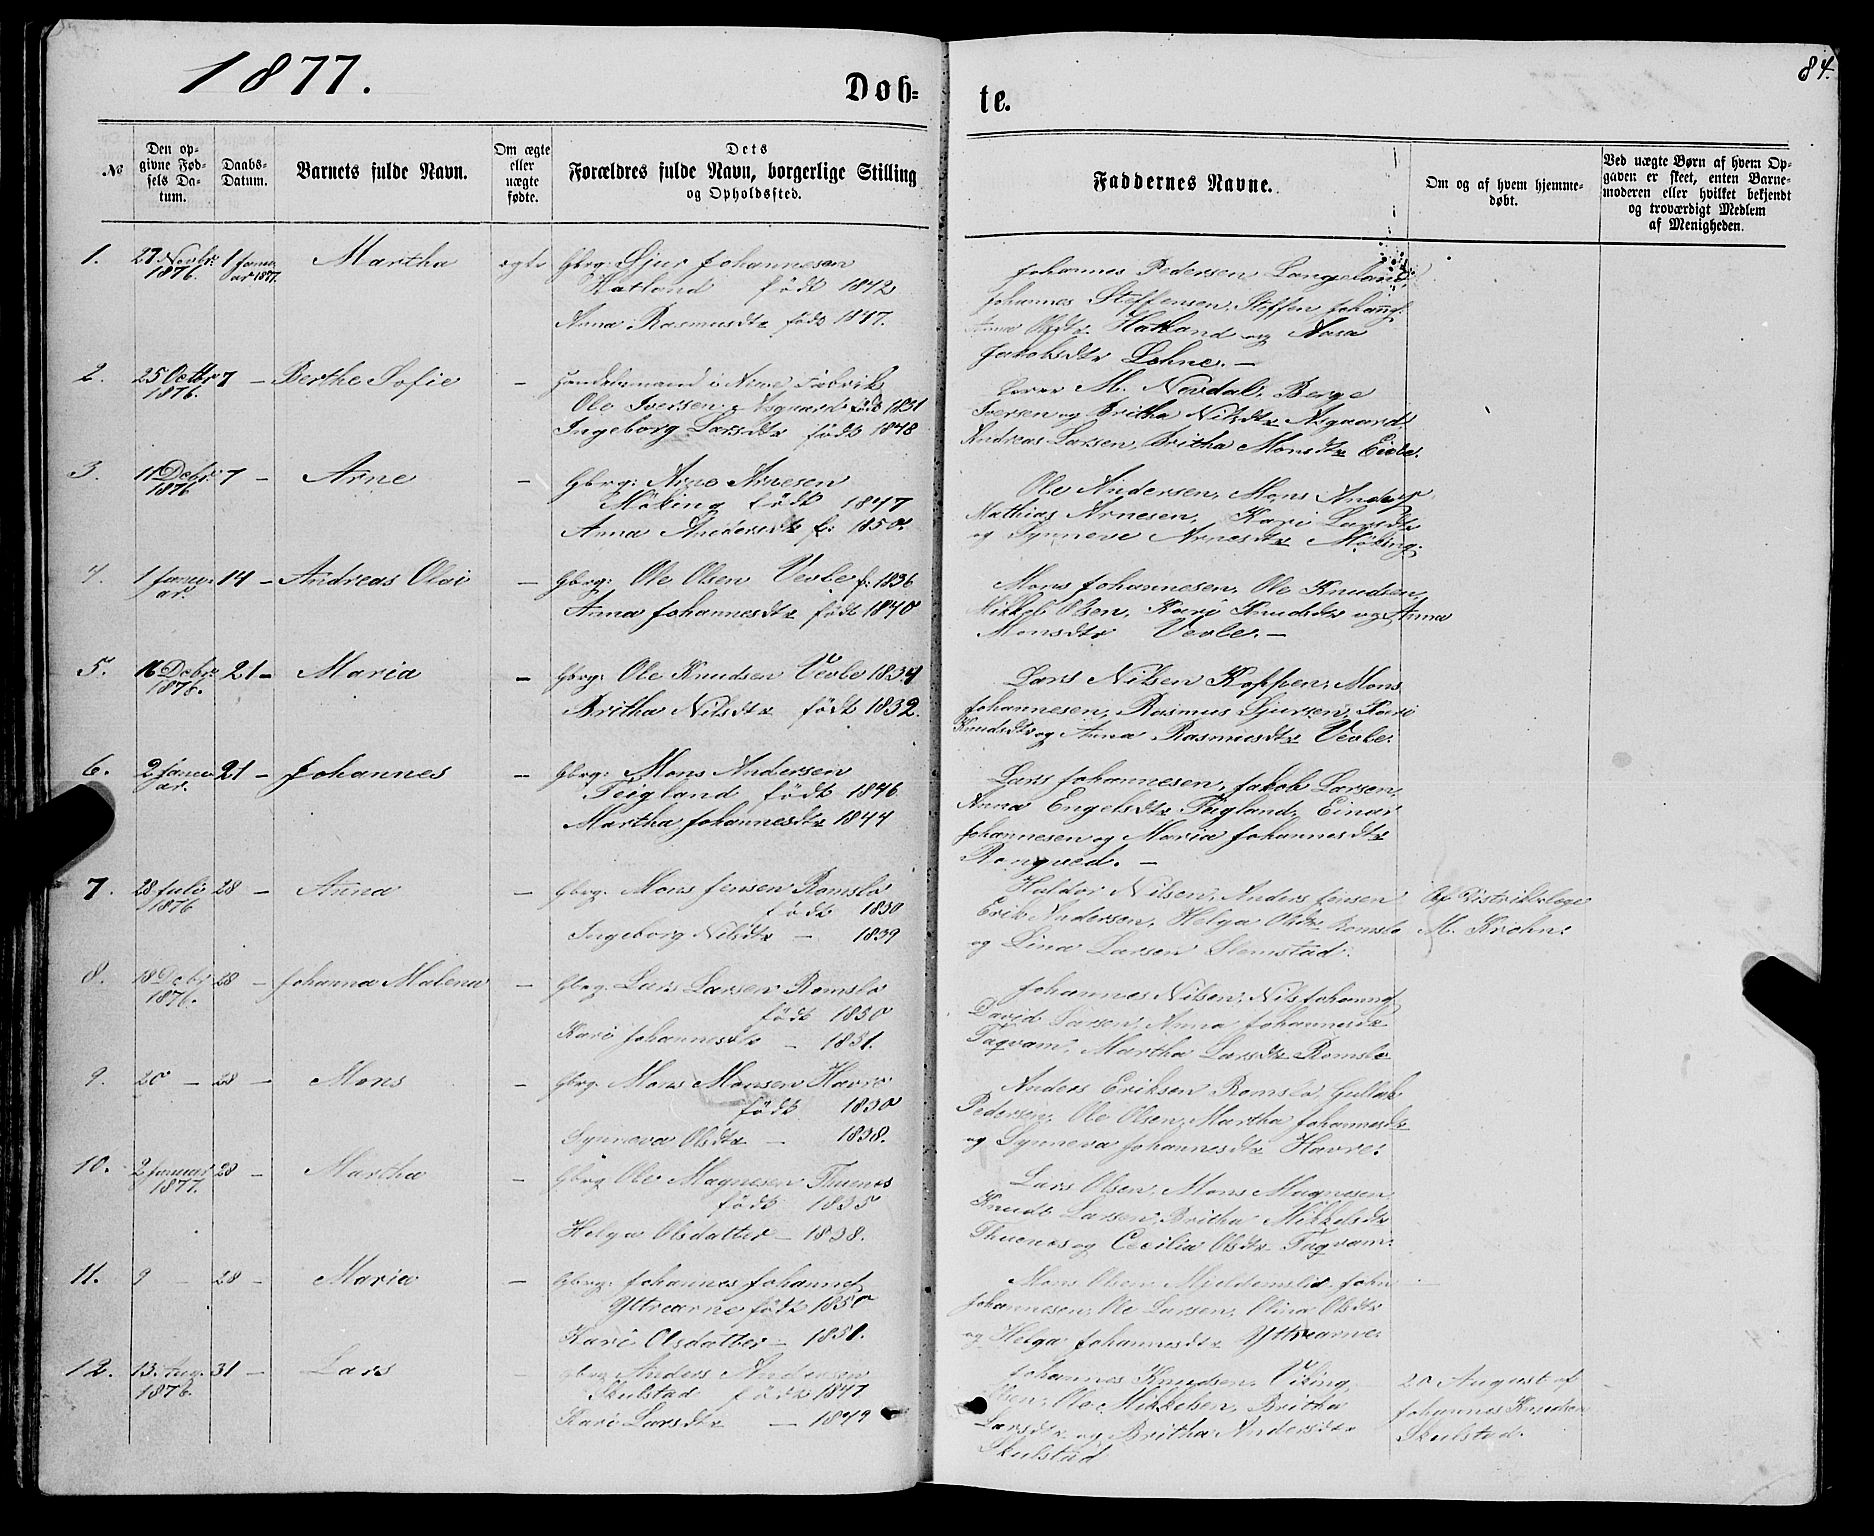 1877.
Døb-
te.
84.
No
Den op-
givne Fød-
sels Da-
tum.
Daabs-
Datum.
Barnets fulde Navn.
Om ægte
eller
uægte
fødte.
Dets
Forældres fulde Navn, borgerlige Stilling
og Opholdssted.
Faddernes Navne.
Om og af hvem hjemme-
døbt.
Ved uægte Børn af hvem Op-
gaven er skeet, enten Barne-
moderen eller hvilket bekjendt
og troværdigt Medlem
af Menigheden.
1. 27 Novbr: 1 Janu- Martha ægte Gbrg: Sjur Johannesen
1876. ar 1877. Hatland født 1842
Anna Rasmusdtr født 1847.
Johannes Pedersen Langeland,
Johannes Steffensen, Steffen
Anna Olsdtr Hatland og
Jakobsdtr Lohne. —
2. 25 Octbr 7 — Berthe Sofie — Handelsmand i Arne Fabrik
1876. Ole Iversen Asgaard født 1831
Ingeborg Larsdtr født 1848
M. Nevdal, Berge
Iversen og Britha Nilsdtr Asgaard,
Andreas Larsen, Britha Monsdtr
3. 11 Decbr: 7 — Arne — Gbrg: Arne Arnesen
1876 Møking født 1847
Anna Andersdtr f: 1850.
Ole Andersen, Mons
Mathias Arnesen, Kari Larsdtr
og Synneve Arnesdtr Møking.
4. 1 Janu- 14 — Andreas Olai — Gbrg: Ole Olsen Vevle f: 1836
ar. Anna Johannesdtr født 1840
Mons Johannesen, Ole Knudsen,
Mikkel Olsen, Kari Knudsdtr og Anna
Monsdtr Vevle. —
5. 16 Decbr: 21 — Maria — Gbrg: Ole Knudsen Vevle 1834
1876. Britha Nilsdtr født 1832.
Lars Nilsen Koppen, Mons
Johannesen, Rasmus Sjursen, Kari
Knudsdtr og Anna Rasmusdtr Vevle.
6. 2 Janu- 21 — Johannes — Gbrg: Mons Andersen
ar. Teigland født 1846
Martha Johannesdtr 1844
Lars Johannesen, Jakob Larsen,
Anna Engelsdtr Teigland, Einar
Johannesen og Maria Johannesdtr
Rongved. —
7. 28 Juli 28 — Anna — Gbrg. Mons Jensen Romslo
1876 født 1830
Ingeborg Nilsdtr — 1839
Haldor Nilsen, Anders Jensen
Erik Andersen, Helga Olsdtr Romslo
og Lina Larsen
Af Distriktslæge
M. Krohn.
8. 18 Decbr 28 — Johanna Malena — Gbrg. Lars Larsen Romslo
1876. født 1850
Kari Johannesdtr — 1851.
Johannes Nilsen, Nils
David Larsen, Anna Johannesdtr
Taqvam, Martha Larsdtr Romslo
9. 20 — 28 — Mons — Gbrg. Mons Monsen Havre
født 1830
Synneva Olsdtr — 1838.
Anders Eriksen Romslo, Gullak
Pedersen, Ole Olsen, Martha Johannesdtr
og Synneva Johannesdtr Havre.
10. 2 Januar 28 — Martha — Gbrg Ole Magnesen Thuenes
1877. født 1835
Helga Olsdatter — 1838.
Lars Olsen, Mons Magnesen
Knud Larsen, Britha Mikkelsdtr
Thuenes og Cecilia Olsdtr Taqvam.
11. 9 — 28 — Maria — Gbrg. Johannes
Ytrearne født 1850
Kari Olsdatter — 1851.
Mons Olsen
Johannesen, Ole Larsen, Olina Olsdtr
og Helga Johannesdtr Ytrearne.
12. 13. Aug. 31 — Lars — Gbrg Anders Andersen
1876. Skulstad født 1847
Kari Larsdtr — 1849
Johannes Knudsen, Viking
Ole Mikkelsen, Britha
Larsdtr og Britha Andersdtr
Skulstad
20 August af
Johannes Knudsen
Skulstad.